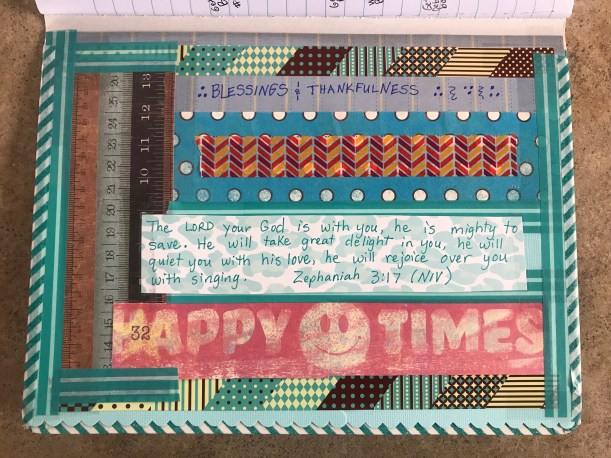 BLESSINGS & THANKFULNESS
The LORD your God is with you, he is mighty to
save. He will take great delight in you, he will
quiet you with his love, he will rejoice over you
with singing. Zephaniah 3:17 (NIV)
32
HAPPY TIMES
13
12
11
10
9
26
25
24
23
22
21
20
19
18
17
16
15
14